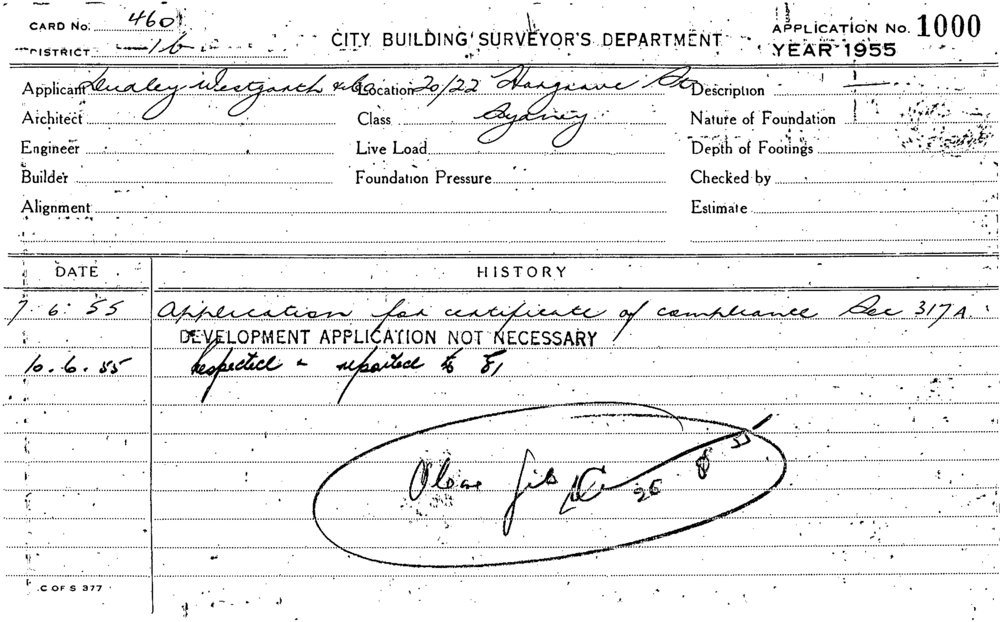 CARD No. 460
DISTRICT 16
CITY BUILDING SURVEYOR'S DEPARTMENT
APPLICATION No. 1000
YEAR 1955
Applicant Dudley Westgarth & Co Location 20/22 Hargrave St Description
Architect Class Sydney Nature of Foundation
Engineer Live Load Depth of Footings
Builder Foundation Pressure Checked by
Alignment Estimate
DATE HISTORY
7.6.55 Application for certificate of compliance Sec 317A.
DEVELOPMENT APPLICATION NOT NECESSARY
10.6.55 Inspected & reported to
C OF S 377